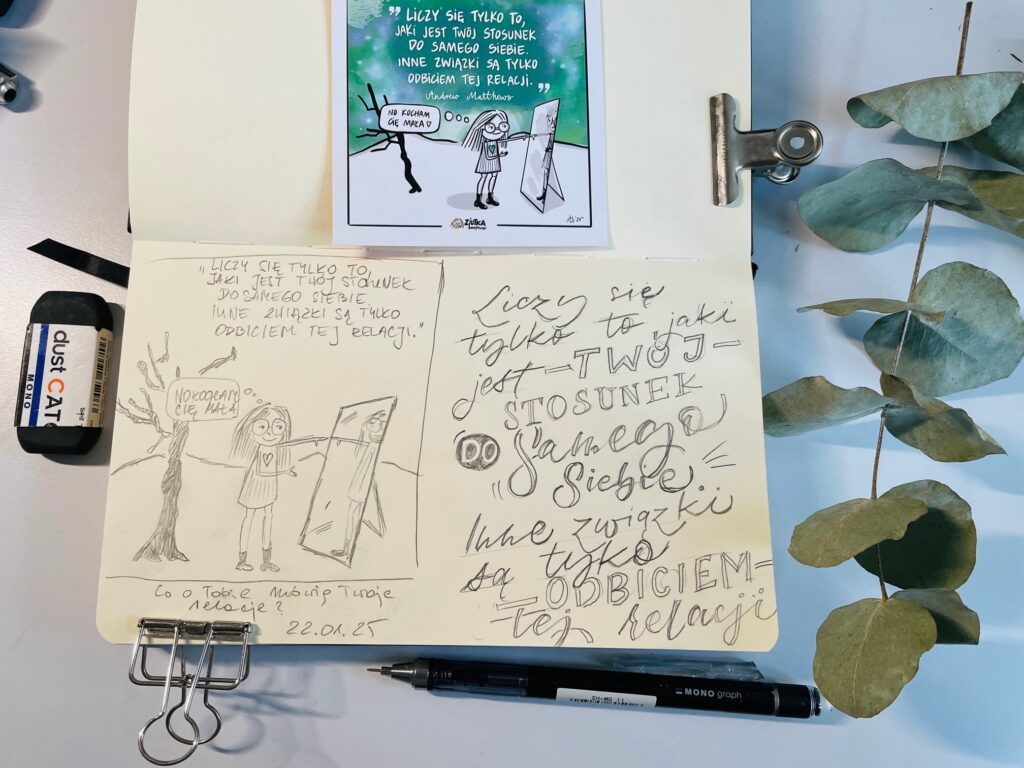 „ LICZY SIĘ TYLKO TO,
JAKI JEST TWÓJ STOSUNEK
DO SAMEGO SIEBIE.
INNE ZWIĄZKI SĄ TYLKO
ODBICIEM TEJ RELACJI. ”
Andrew Matthews
NO KOCHAM
CIĘ MAŁA
ZIUTKA
„LICZY SIĘ TYLKO TO,
JAKI JEST TWÓJ STOSUNEK
DO SAMEGO SIEBIE
INNE ZWIĄZKI SĄ TYLKO
ODBICIEM TEJ RELACJI."
NO KOCHAM
CIĘ MAŁA
Co o Tobie mówią Twoje
relacje?
22.01.25
Liczy się
tylko to, jaki
jest — TWÓJ —
STOSUNEK
DO Samego
Siebie.
Inne związki
są tylko
— ODBICIEM —
tej relacji
dust CAT
MONO
MONO graph